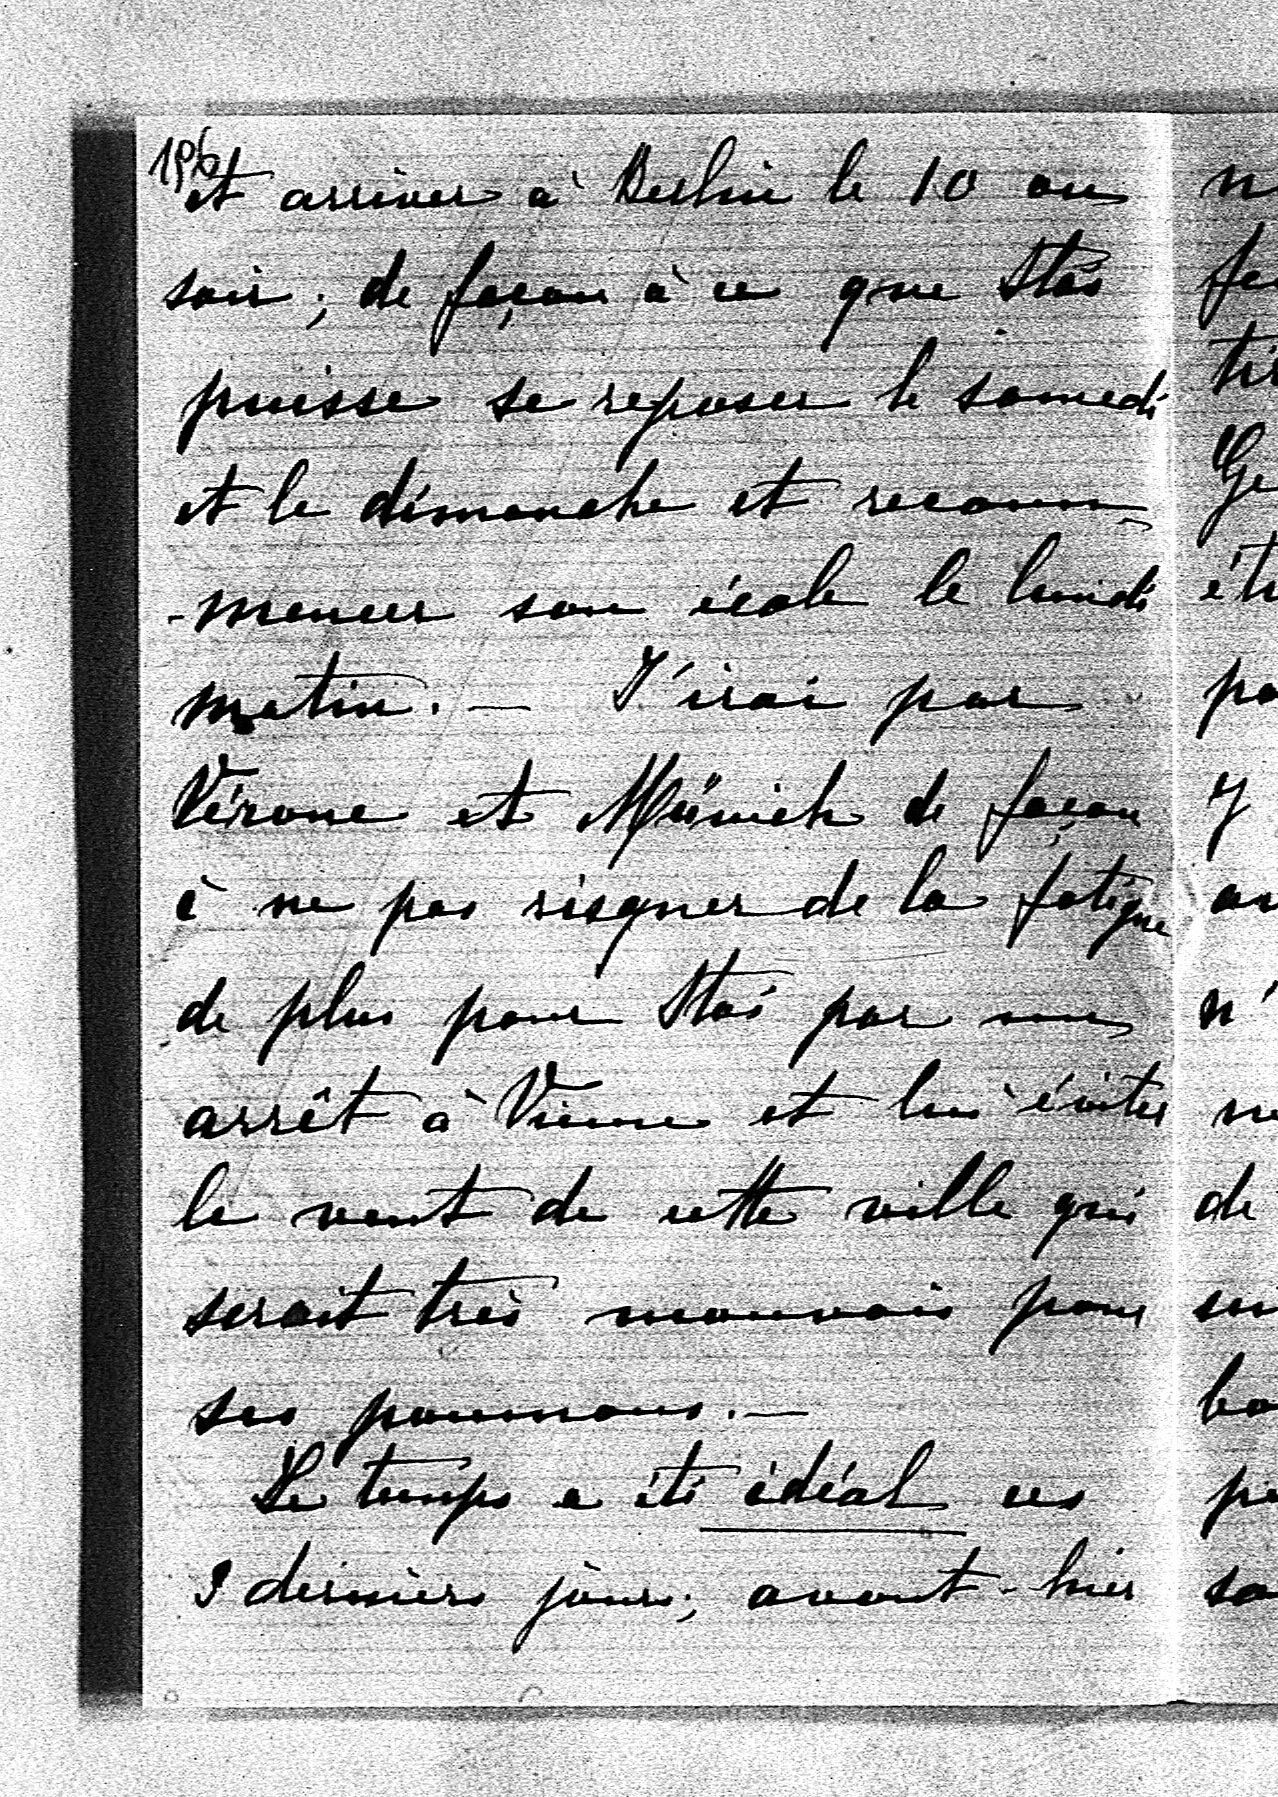 196
et arriver à Berlin le 10 au
soir; de façon à ce que Stas
puisse se reposer le samedi
et le dimanche et recom-
-mencer son école le lundi
matin. — J'irai par
Vérone et Münich de façon
à ne pas risquer de la fatigue
de plus pour Stas par un
arrêt à Vienne et lui éviter
le vent de cette ville qui
serait très mauvais pour
ses poumons. —
Le temps a été idéal ces
derniers jours; avant-hier